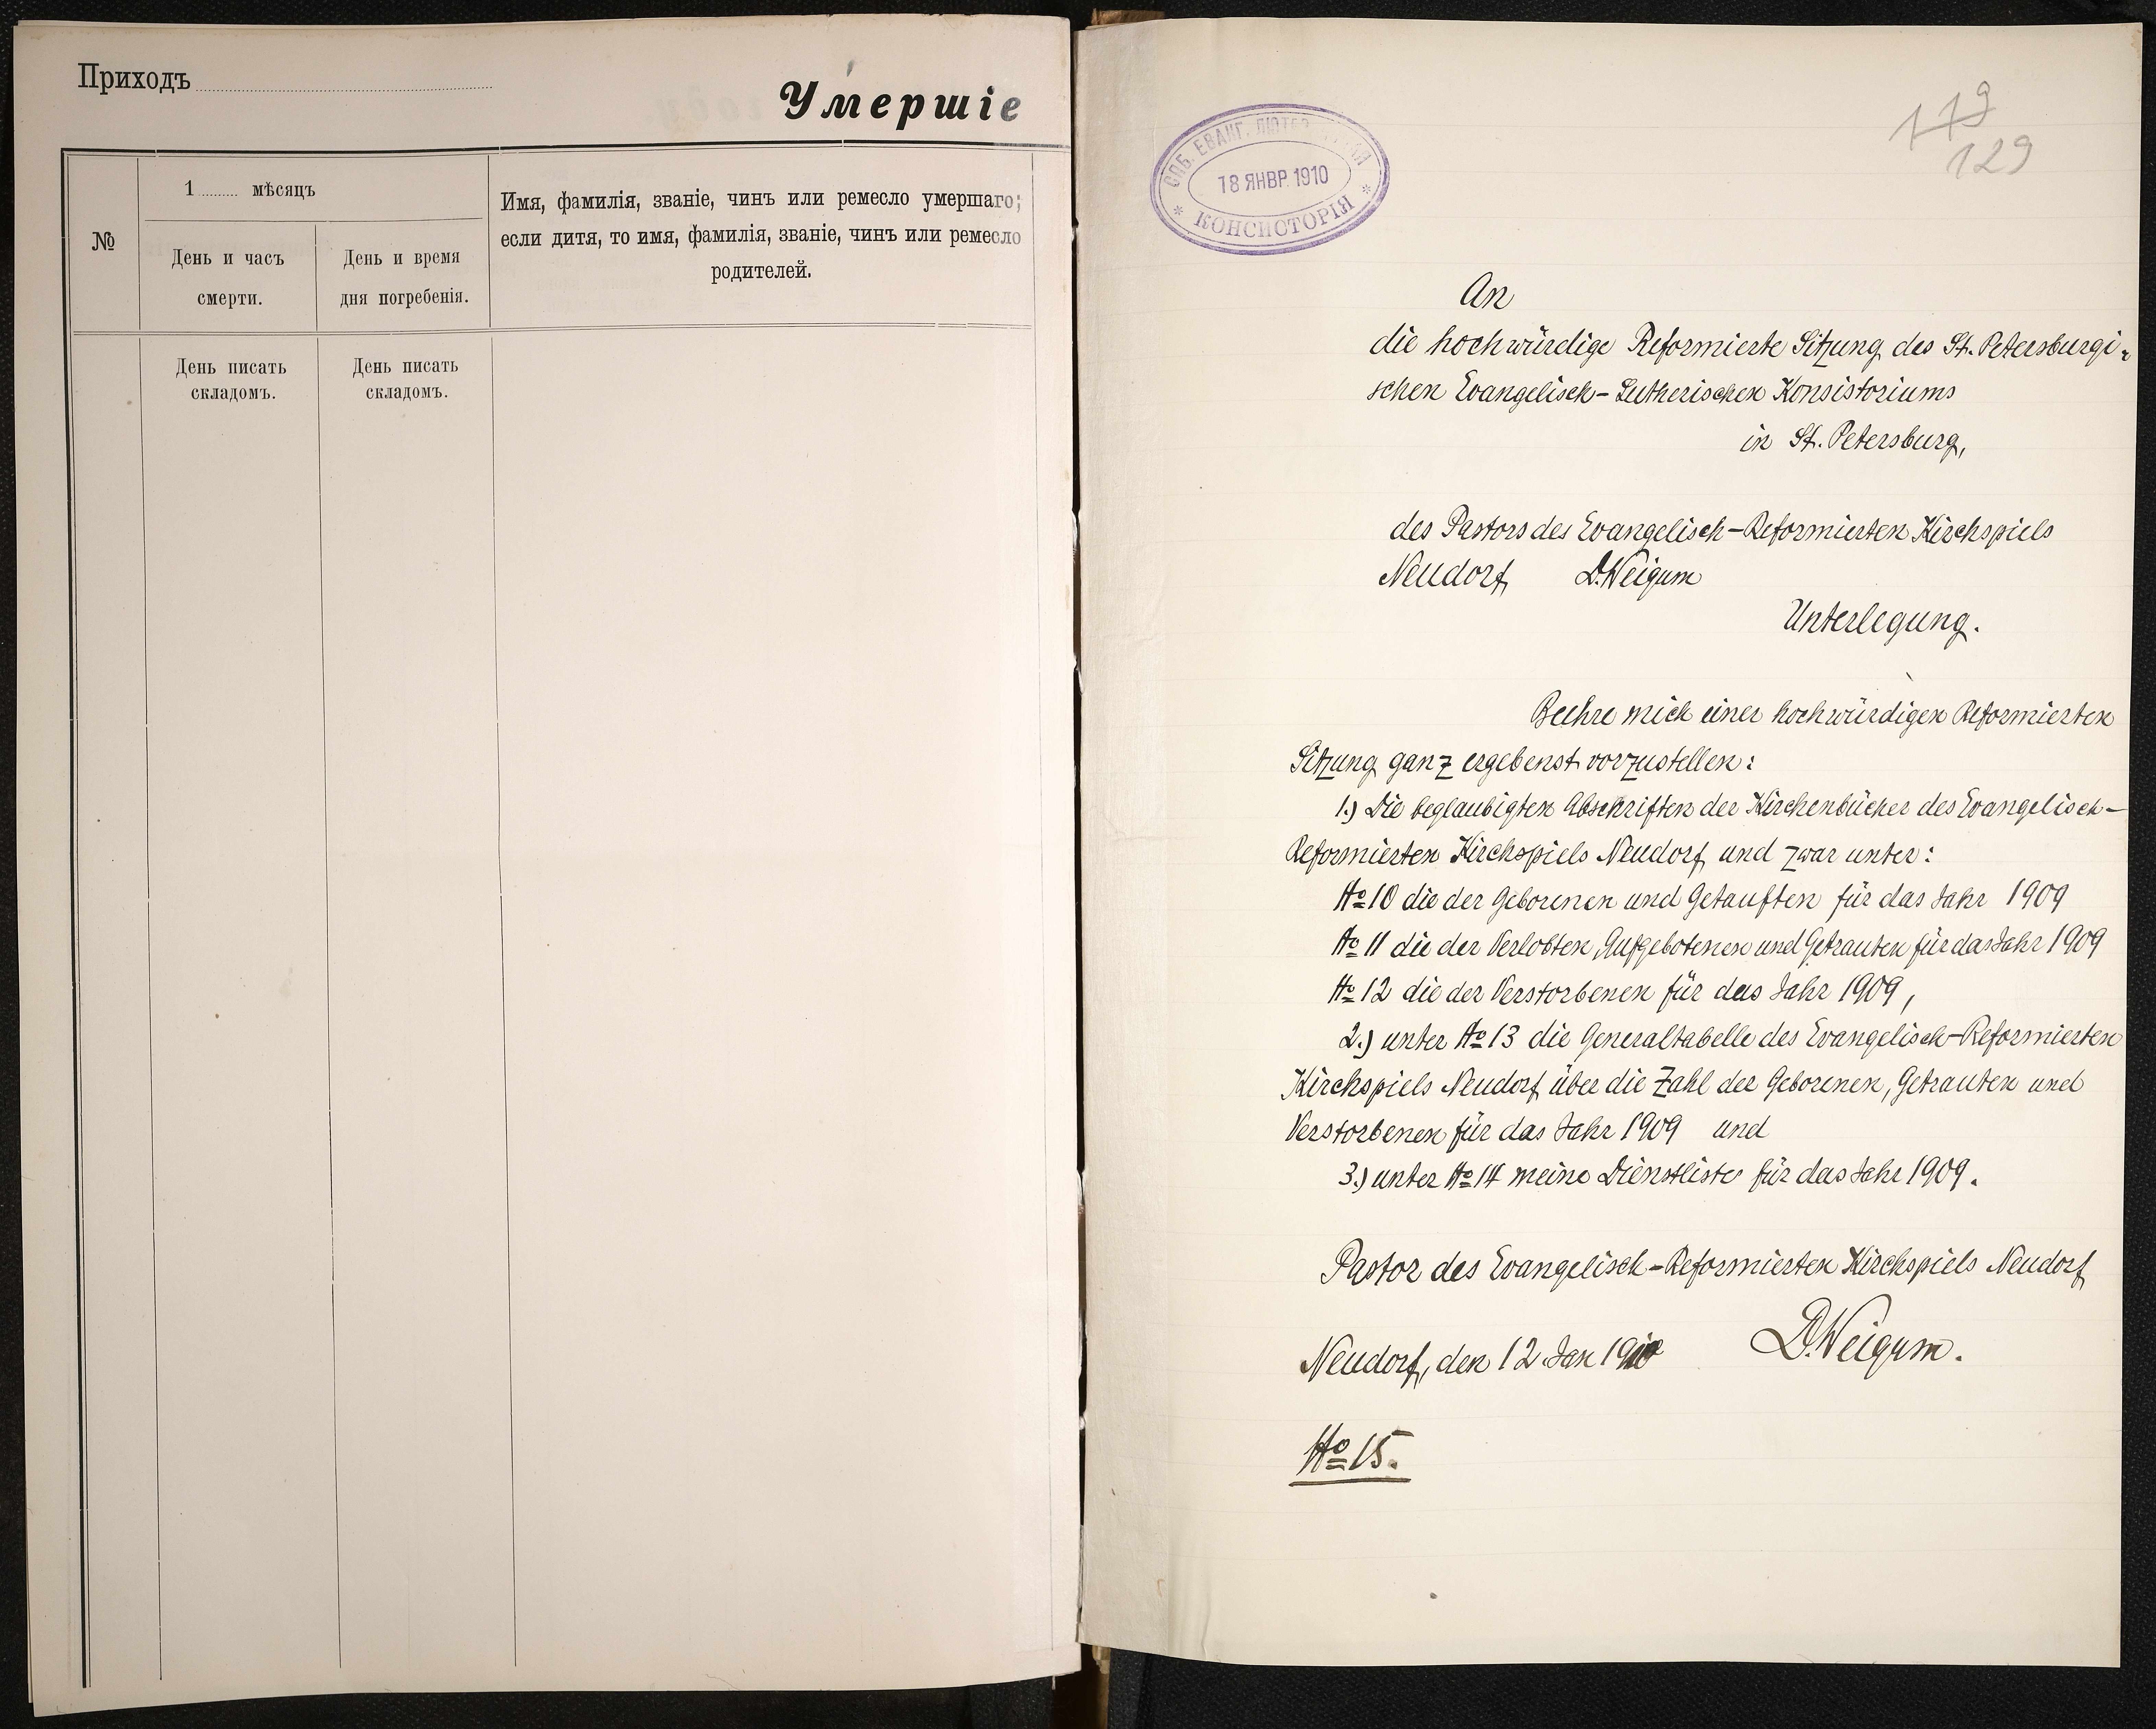 Приходъ
Умершіе
№
1 мѣсяцъ
День и часъ
смерти.
День и время
дня погребенія.
Имя, фамилія, званіе, чинъ или ремесло умершаго;
если дитя, то имя, фамилія, званіе, чинъ или ремесло
родителей.
День писать
складомъ.
День писать
складомъ.
179
129
СПБ. ЕВАНГ. ЛЮТЕР
18 ЯНВР. 1910
* КОНСИСТОРІЯ *
An
die hochwürdige Reformierte Sitzung des St. Petersburgi-
schen Evangelisch-Lutherischen Konsistoriums
in St. Petersburg,
des Pastors des Evangelisch-Reformierten Kirchspiels
Neudorf D. Weigum
Unterlegung.
Beehre mich einer hochwürdigen Reformierten
Sitzung ganz ergebenst vorzustellen:
1.) Die beglaubigten Abschriften der Kirchenbücher des Evangelisch-
Reformierten Kirchspiels Neudorf und zwar unter:
№ 10 die der Geborenen und Getauften für das Jahr 1909
№ 11 die der Verlobten, Aufgebotenen und Getrauten für das Jahr 1909
№ 12 die der Verstorbenen für das Jahr 1909,
2.) unter № 13 die Generaltabelle des Evangelisch-Reformierten
Kirchspiels Neudorf über die Zahl der Geborenen, Getrauten und
Verstorbenen für das Jahr 1909 und
3.) unter № 14 meine Dienstliste für das Jahr 1909.
Pastor des Evangelisch-Reformierten Kirchspiels Neudorf
Neudorf, den 12 Jan 1910 D. Weigum.
№ 15.